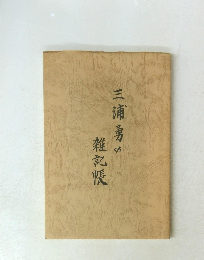 三浦勇の
雑記帳